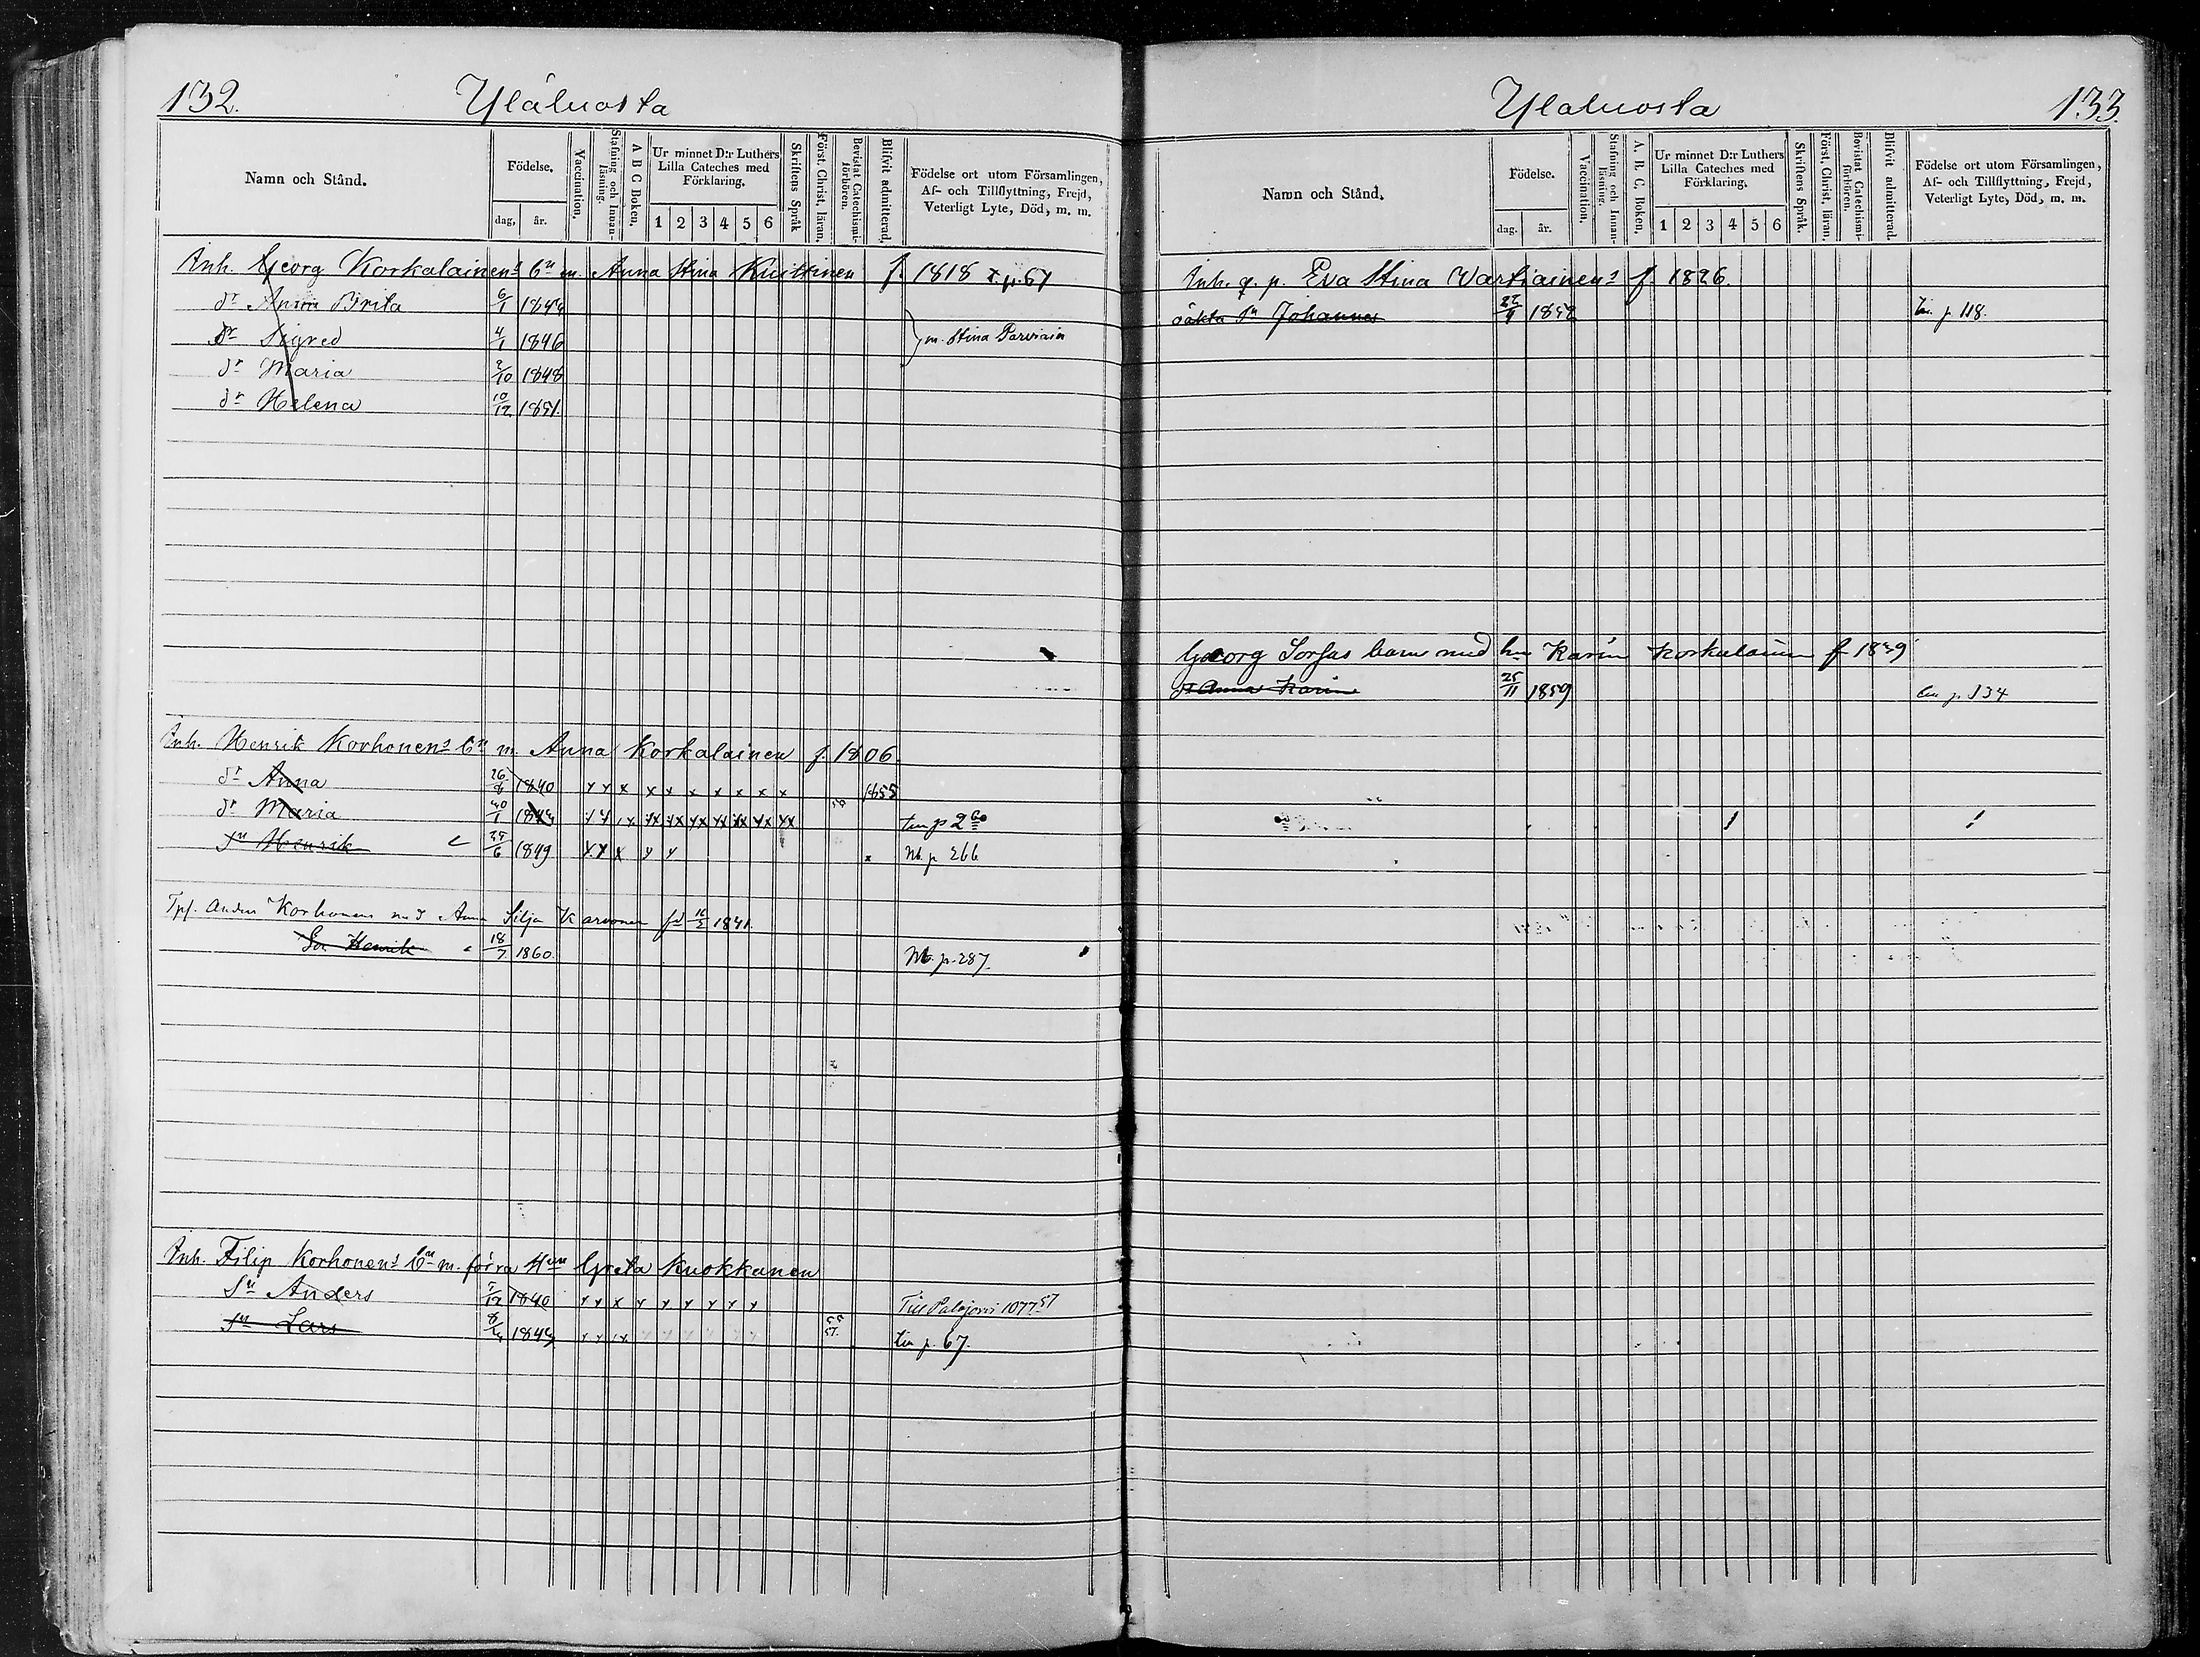 132. Yläluosta
Namn och Stånd. Födelse. dag. år. Vaccination. Stafning och Innanläsning. A B C Boken. Ur minnet D:r Luthers Lilla Cateches med Förklaring. 1 2 3 4 5 6 Skriftens Språk Först. Christ. läran. Bevistat Catechismi-förhören. Blifvit admitterad. Födelse ort utom Församlingen, Af- och Tillflyttning, Frejd, Veterligt Lyte, Död, m. m.
Inh. Georg Korkalainens Bn m. Anna Stina Knittinen f. 1818 p. 67
dr Anna Brita 6/1 1844
dr Sigred 4/1 1846 m. Stina Parviain
dr Maria 2/10 1848
dr Helena 10/12 1851.
Inh. Henrik Korhonens Bn m. Anna Korkalainen f. 1806.
dr Anna 26/8 1840 x x x x x x x x x x 1855
dr Maria 30/1 1843
sn Henrik 25/6 1849 x x x x x Nb. p 266
Tpf. Anders Korhonens med Anna Silja Karvonen fd 1841.
Son Henrik 18/7 1860. Nb. p. 287.
Inh. Filip Korhonens Bn m. förra Hun Greta Knokkanen
Sn Anders 1840 x x x x x x x x x Till Palojärvi 1077 57
sn Lars 1843 lin p. 67.
Ylaluosta 133.
Namn och Stånd. Födelse. dag. år. Vaccination. Stafning och Innanläsning. A. B. C. Boken. Ur minnet D:r Luthers Lilla Cateches med Förklaring. 1 2 3 4 5 6 Skriftens Språk. Först. Christ. läran. Bevistat Catechismi-förhören. Blifvit admitterad. Födelse ort utom Församlingen, Af- och Tillflyttning, Frejd, Veterligt Lyte, Död, m. m.
Inh. q. p. Eva Stina Vartiainens f. 1826.
oäkta sn Johannes 1852 lin. p 118.
Georg Sorsas barn med hu Karin Korkalainen f. 1839
dr Anna Karin 25/11 1859 lin p. 134